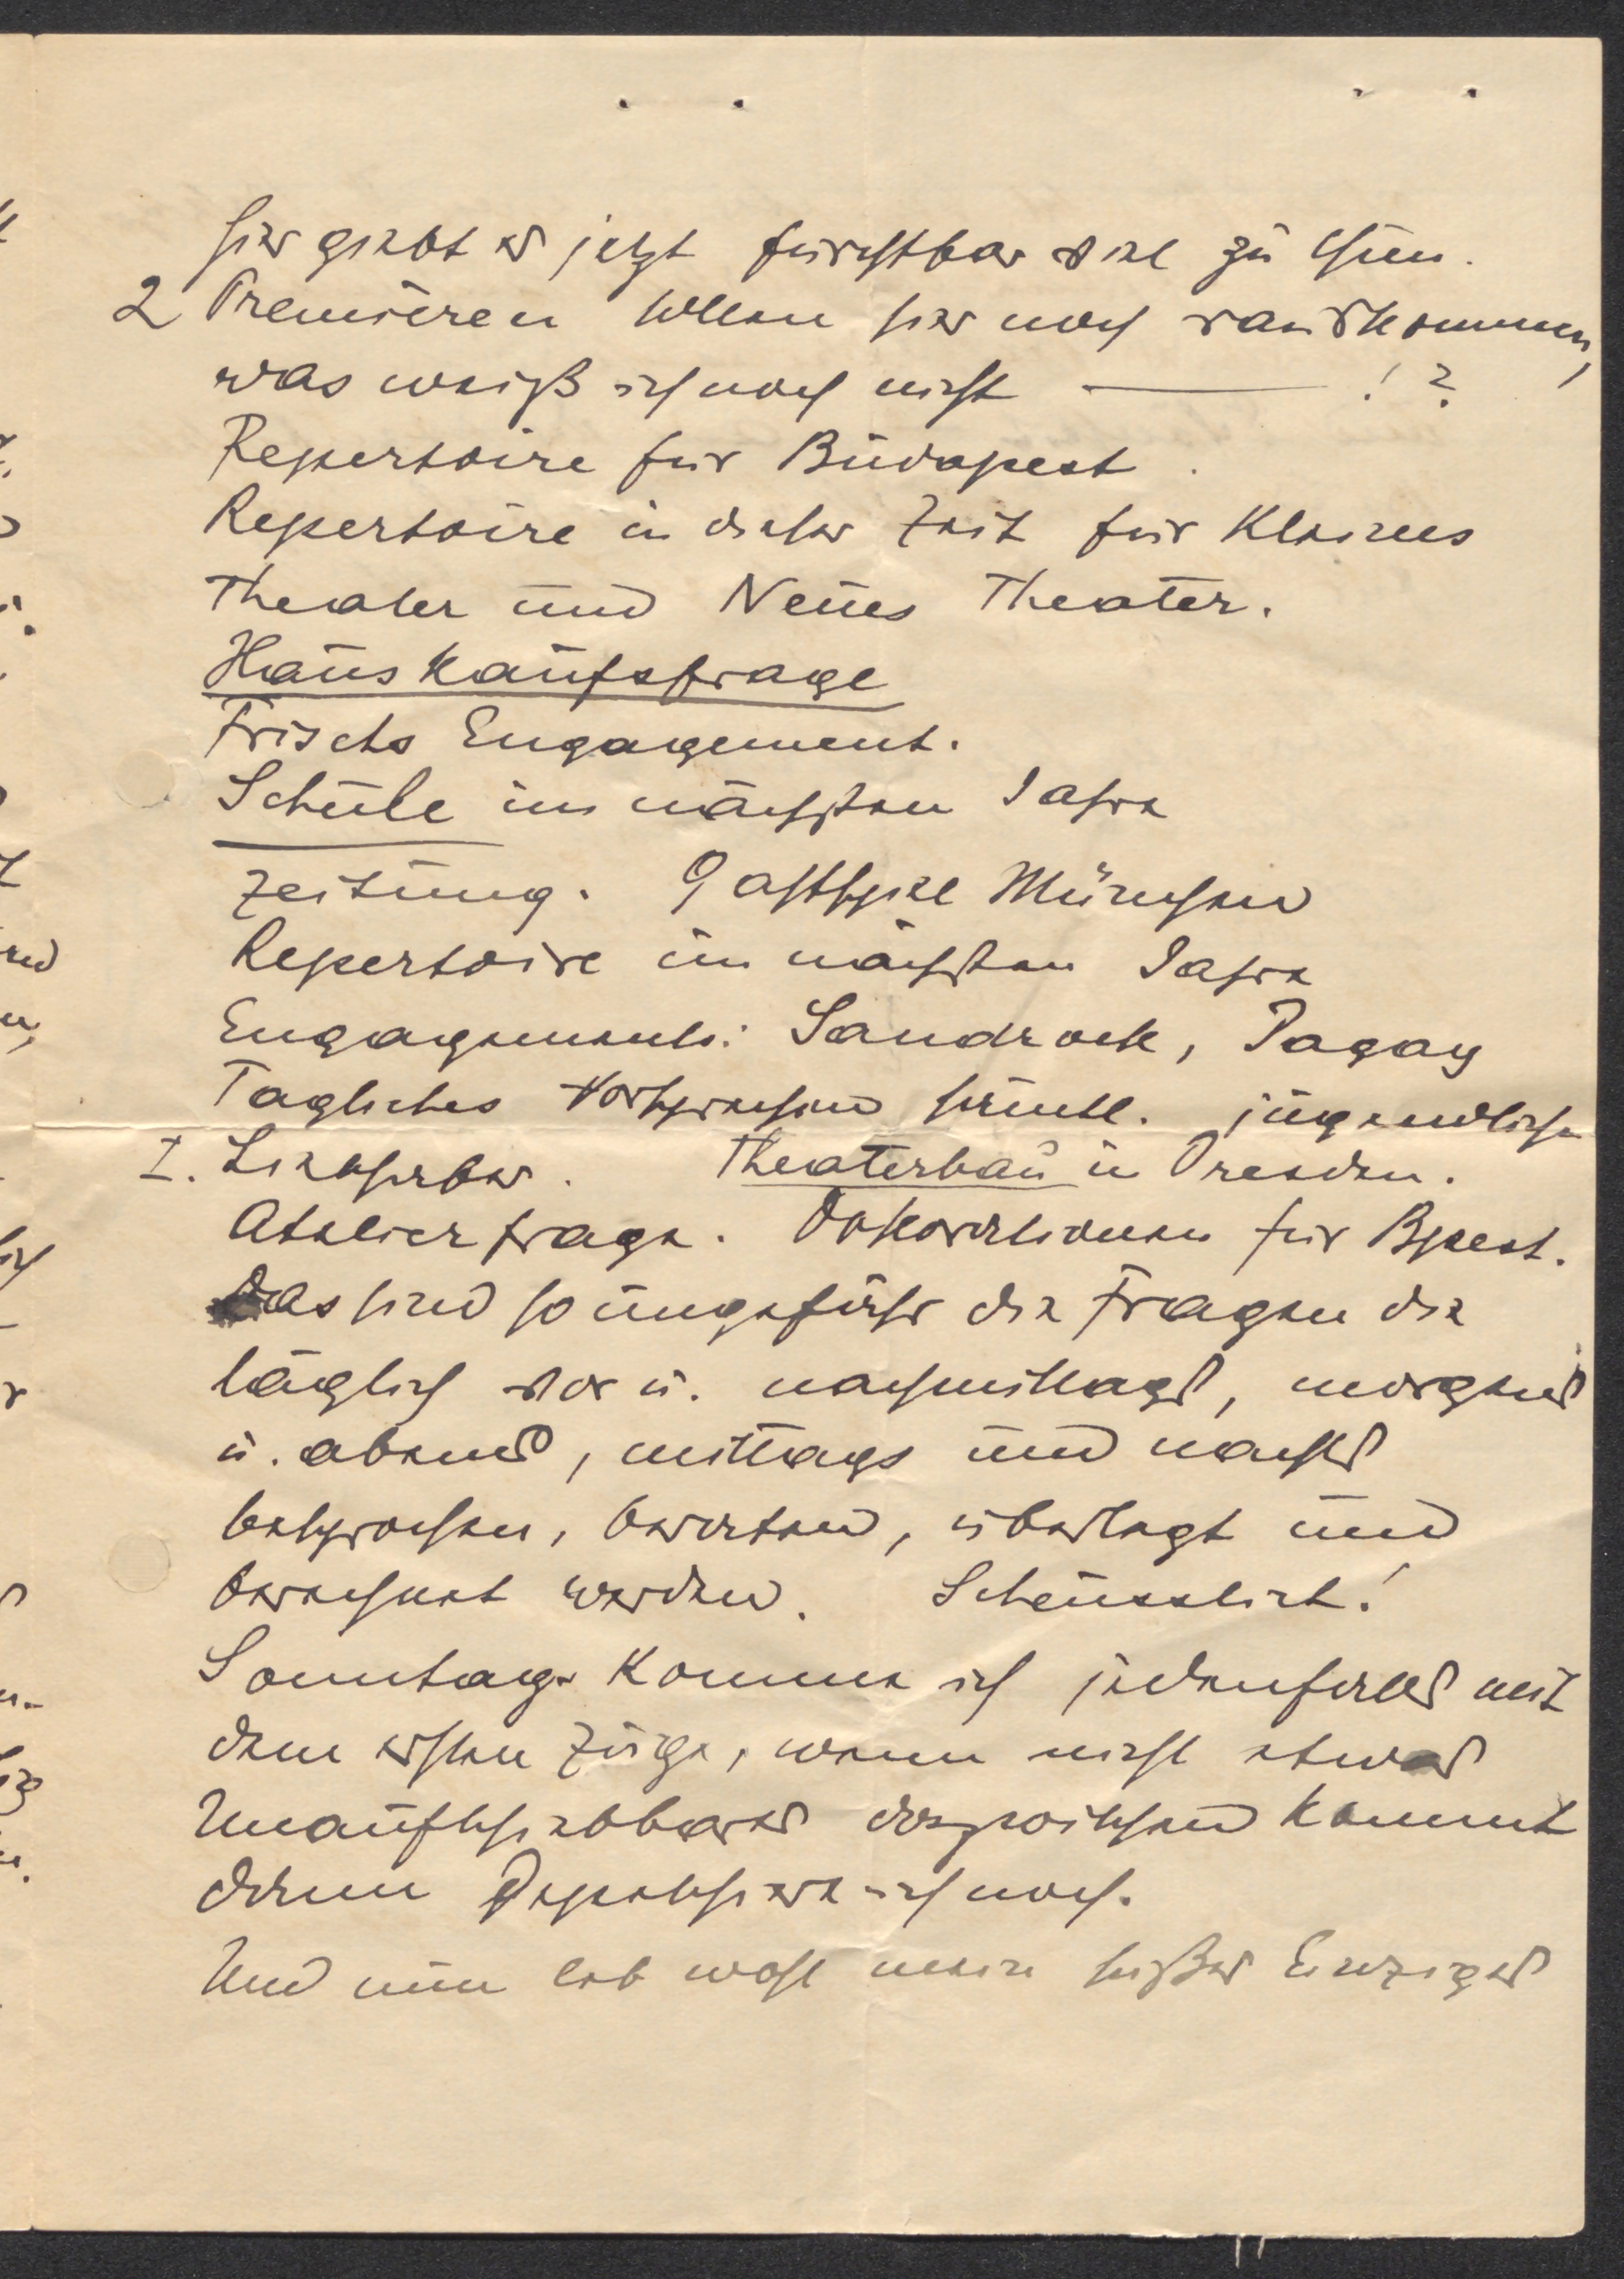 hier giebt es jetzt furchtbar viel zu thun.
2 Premièren sollen hier noch rauskommen,
was weiß ich noch nicht ——— ! ?
Repertoire für Budapest.
Repertoire in dieser Zeit für Kleines
Theater und Neues Theater.
Hauskaufsfrage
Frischs Engagement.
Schule im nächsten Jahre
Zeitung. Gastspiel München
Repertoire im nächsten Jahre
Engagements: Sandrock, Pagay
Tägliches Vorsprechen sämtl. jugendlicher
I. Liebhaber. Theaterbau in Dresden.
Atelierfrage. Dekorationen für Bpest.
Das sind so ungefähr die Fragen die
täglich vor u. nachmittags, morgens
u. abends, mittags und nachts
besprochen, beraten, überlegt und
berechnet werden. Scheusslich!
Sonntag komme ich jedenfalls mit
dem ersten Zuge, wenn nicht etwas
Unaufschiebbares dazwischen kommt
dann depeschiere ich noch.
Und nun leb wohl mein süßer Einziger